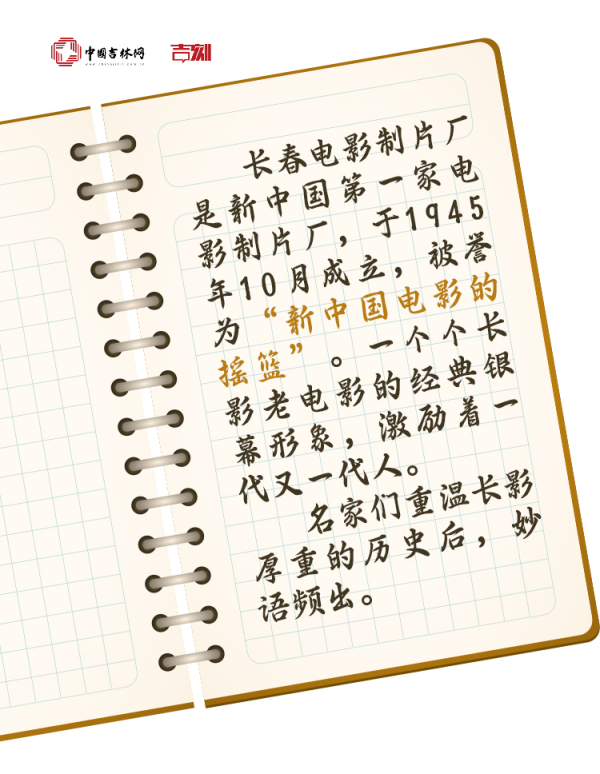 中国吉林网
吉刻
长春电影制片厂
是新中国第一家电
影制片厂，于1945
年10月成立，被誉
为“新中国电影的
摇篮”。一个个长
影老电影的经典银
幕形象，激励着一
代又一代人。
名家们重温长影
厚重的历史后，妙
语频出。